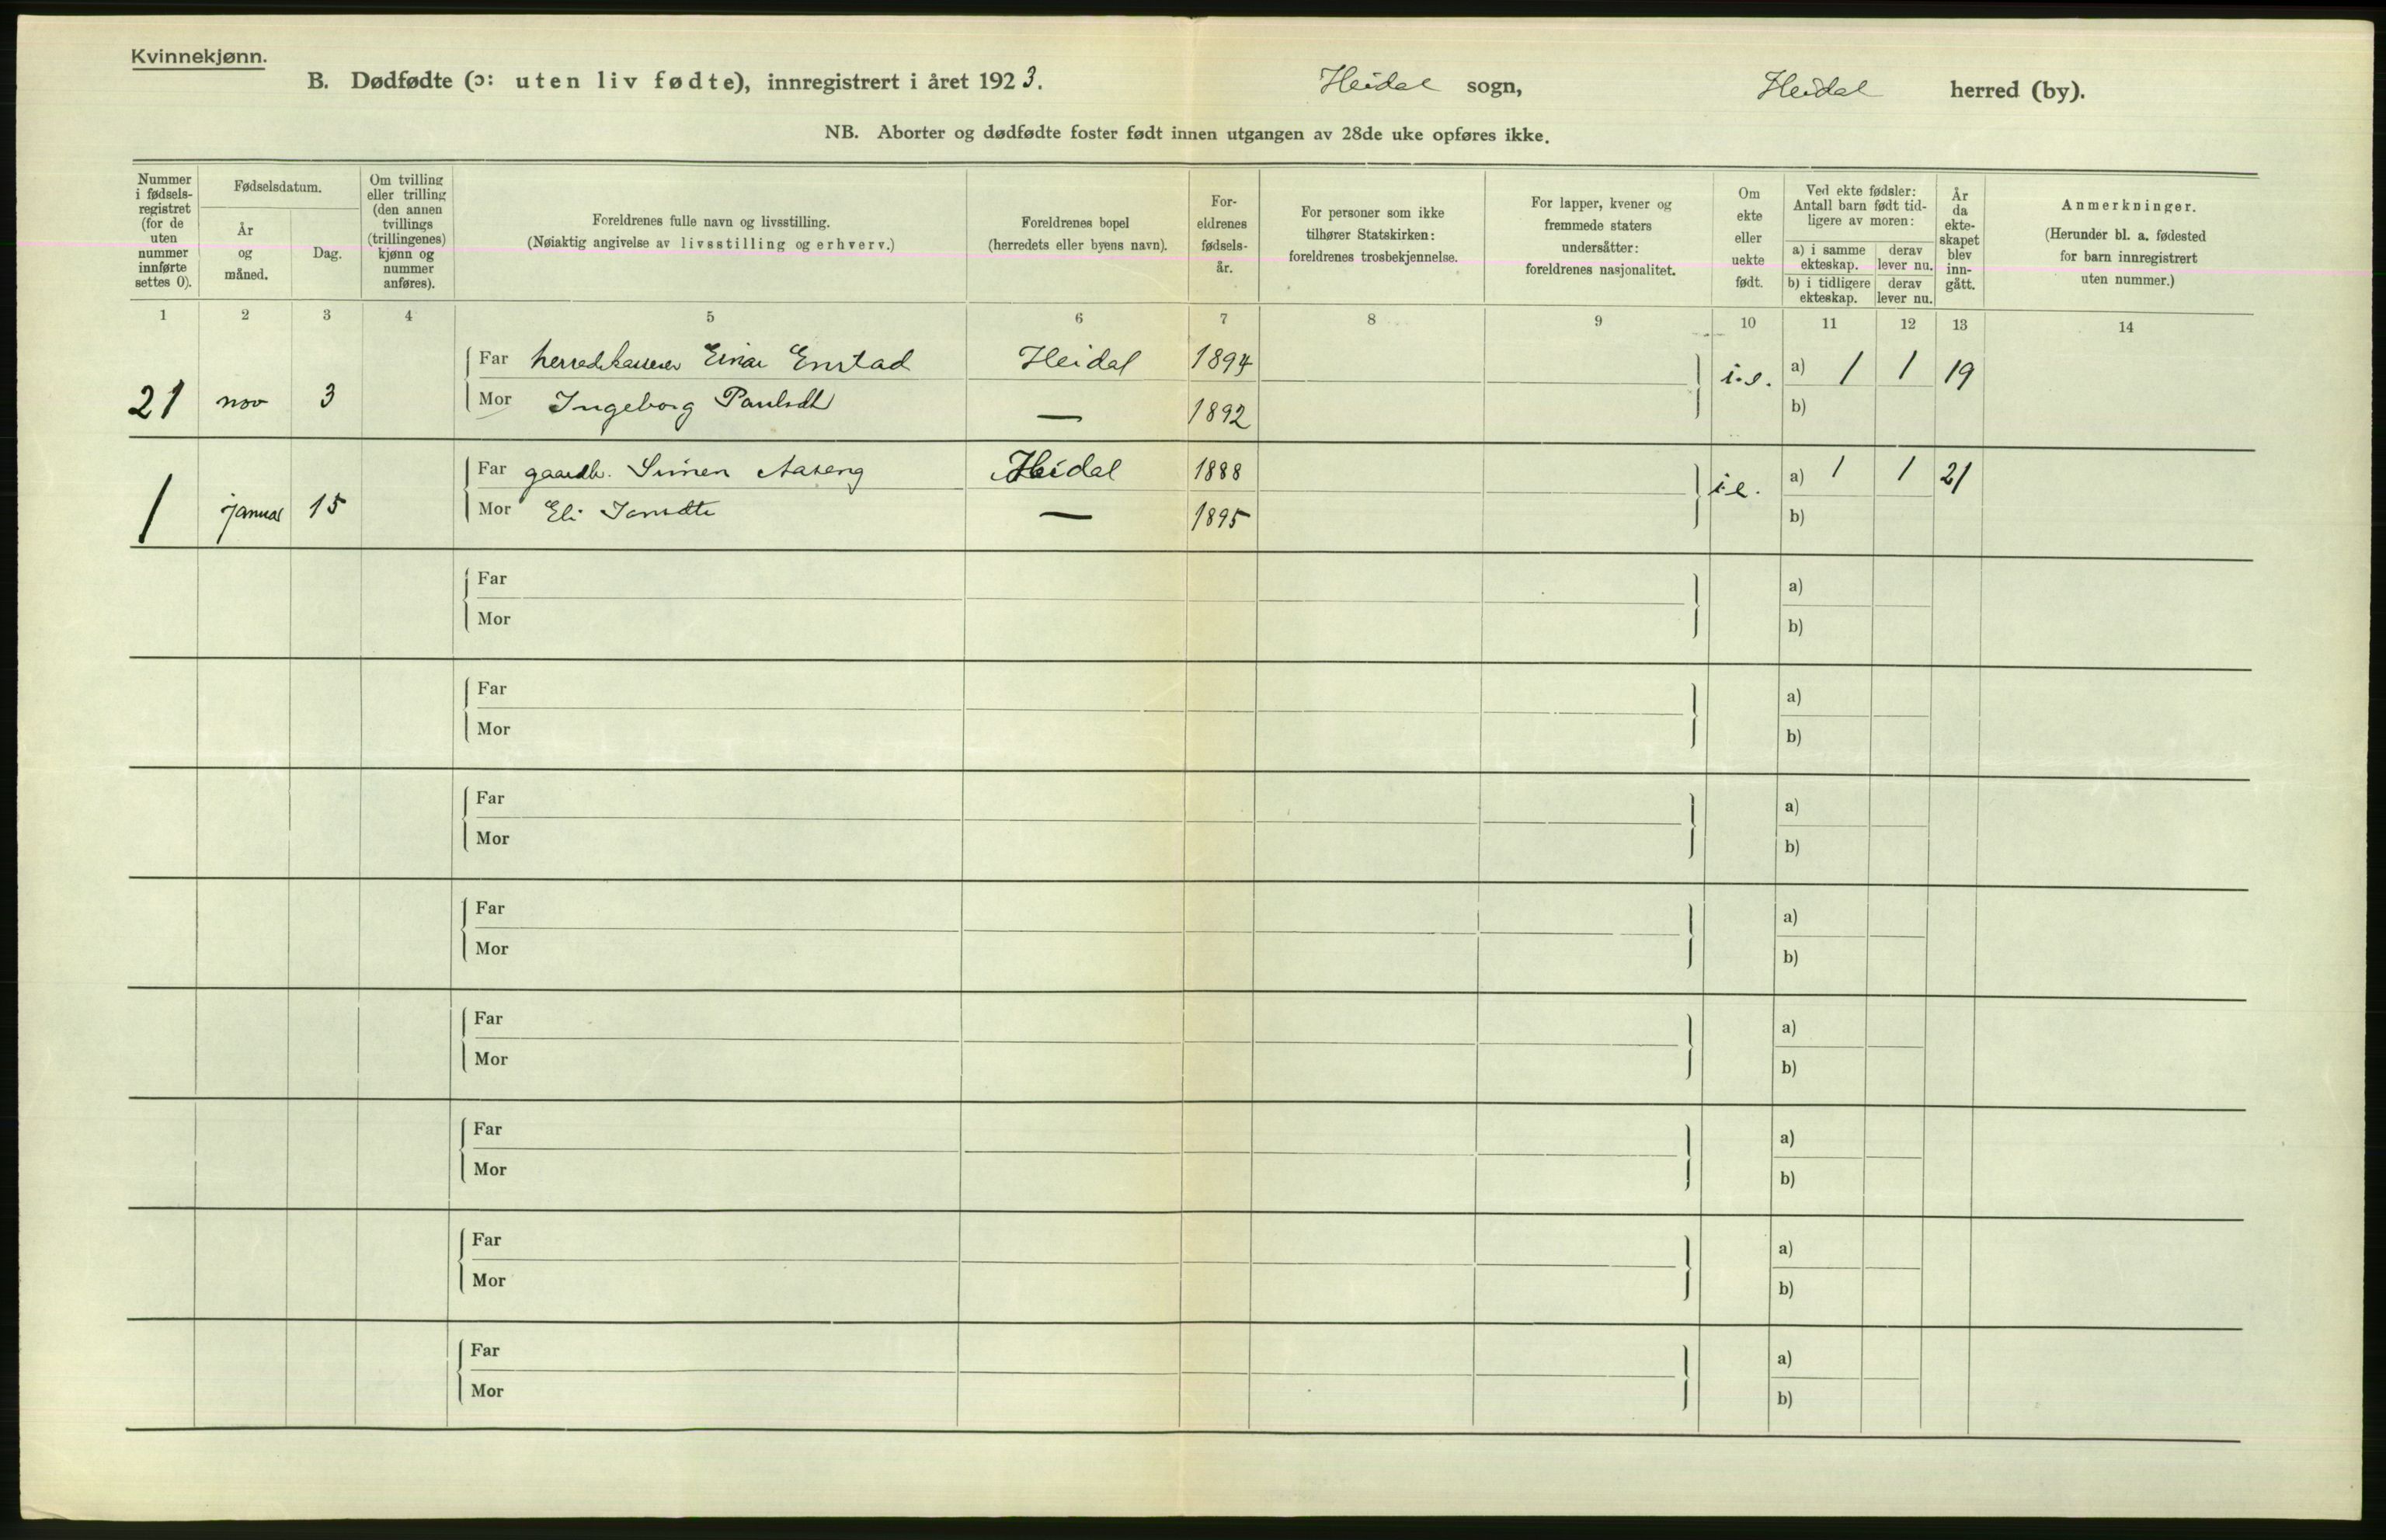 Kvinnekjønn.
B. Dødfødte (ɔ: uten liv fødte), innregistrert i året 1923. Heidal sogn, Heidal herred (by).
NB. Aborter og dødfødte foster født innen utgangen av 28de uke opføres ikke.
Nummer i fødsels-registret (for de uten nummer innførte settes 0).
Fødselsdatum.
År og måned.
Dag.
Om tvilling eller trilling (den annen tvillings (trillingenes) kjønn og nummer anføres).
Foreldrenes fulle navn og livsstilling.
(Nøiaktig angivelse av livsstilling og erhverv.)
Foreldrenes bopel
(herredets eller byens navn).
For-eldrenes fødsels-år.
For personer som ikke tilhører Statskirken: foreldrenes trosbekjennelse.
For lapper, kvener og fremmede staters undersåtter: foreldrenes nasjonalitet.
Om ekte eller uekte født.
Ved ekte fødsler: Antall barn født tid-ligere av moren:
a) i samme ekteskap. derav lever nu.
b) i tidligere ekteskap. derav lever nu.
År da ekte-skapet blev inn-gått.
Anmerkninger.
(Herunder bl. a. fødested for barn innregistrert uten nummer.)
1 2 3 4 5 6 7 8 9 10 11 12 13 14
Far herredskasserer Einar Enstad Heidal 1894
21 nov 3 i.e. a) 1 1 19
Mor Ingeborg Paulsdt — 1892 b)
Far gaardb. Simen Aaseng Heidal 1888
1 januar 15 i.e. a) 1 1 21
Mor Eli Jansdtr — 1895 b)
Far a)
Mor b)
Far a)
Mor b)
Far a)
Mor b)
Far a)
Mor b)
Far a)
Mor b)
Far a)
Mor b)
Far a)
Mor b)
Far a)
Mor b)